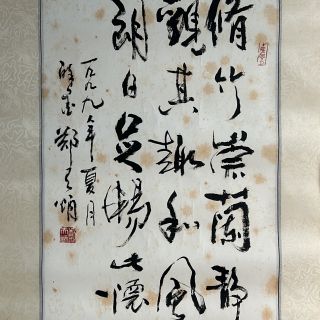 脩竹崇蘭靜
觀其趣和風
朗日足暢此懷
年夏月
鄭